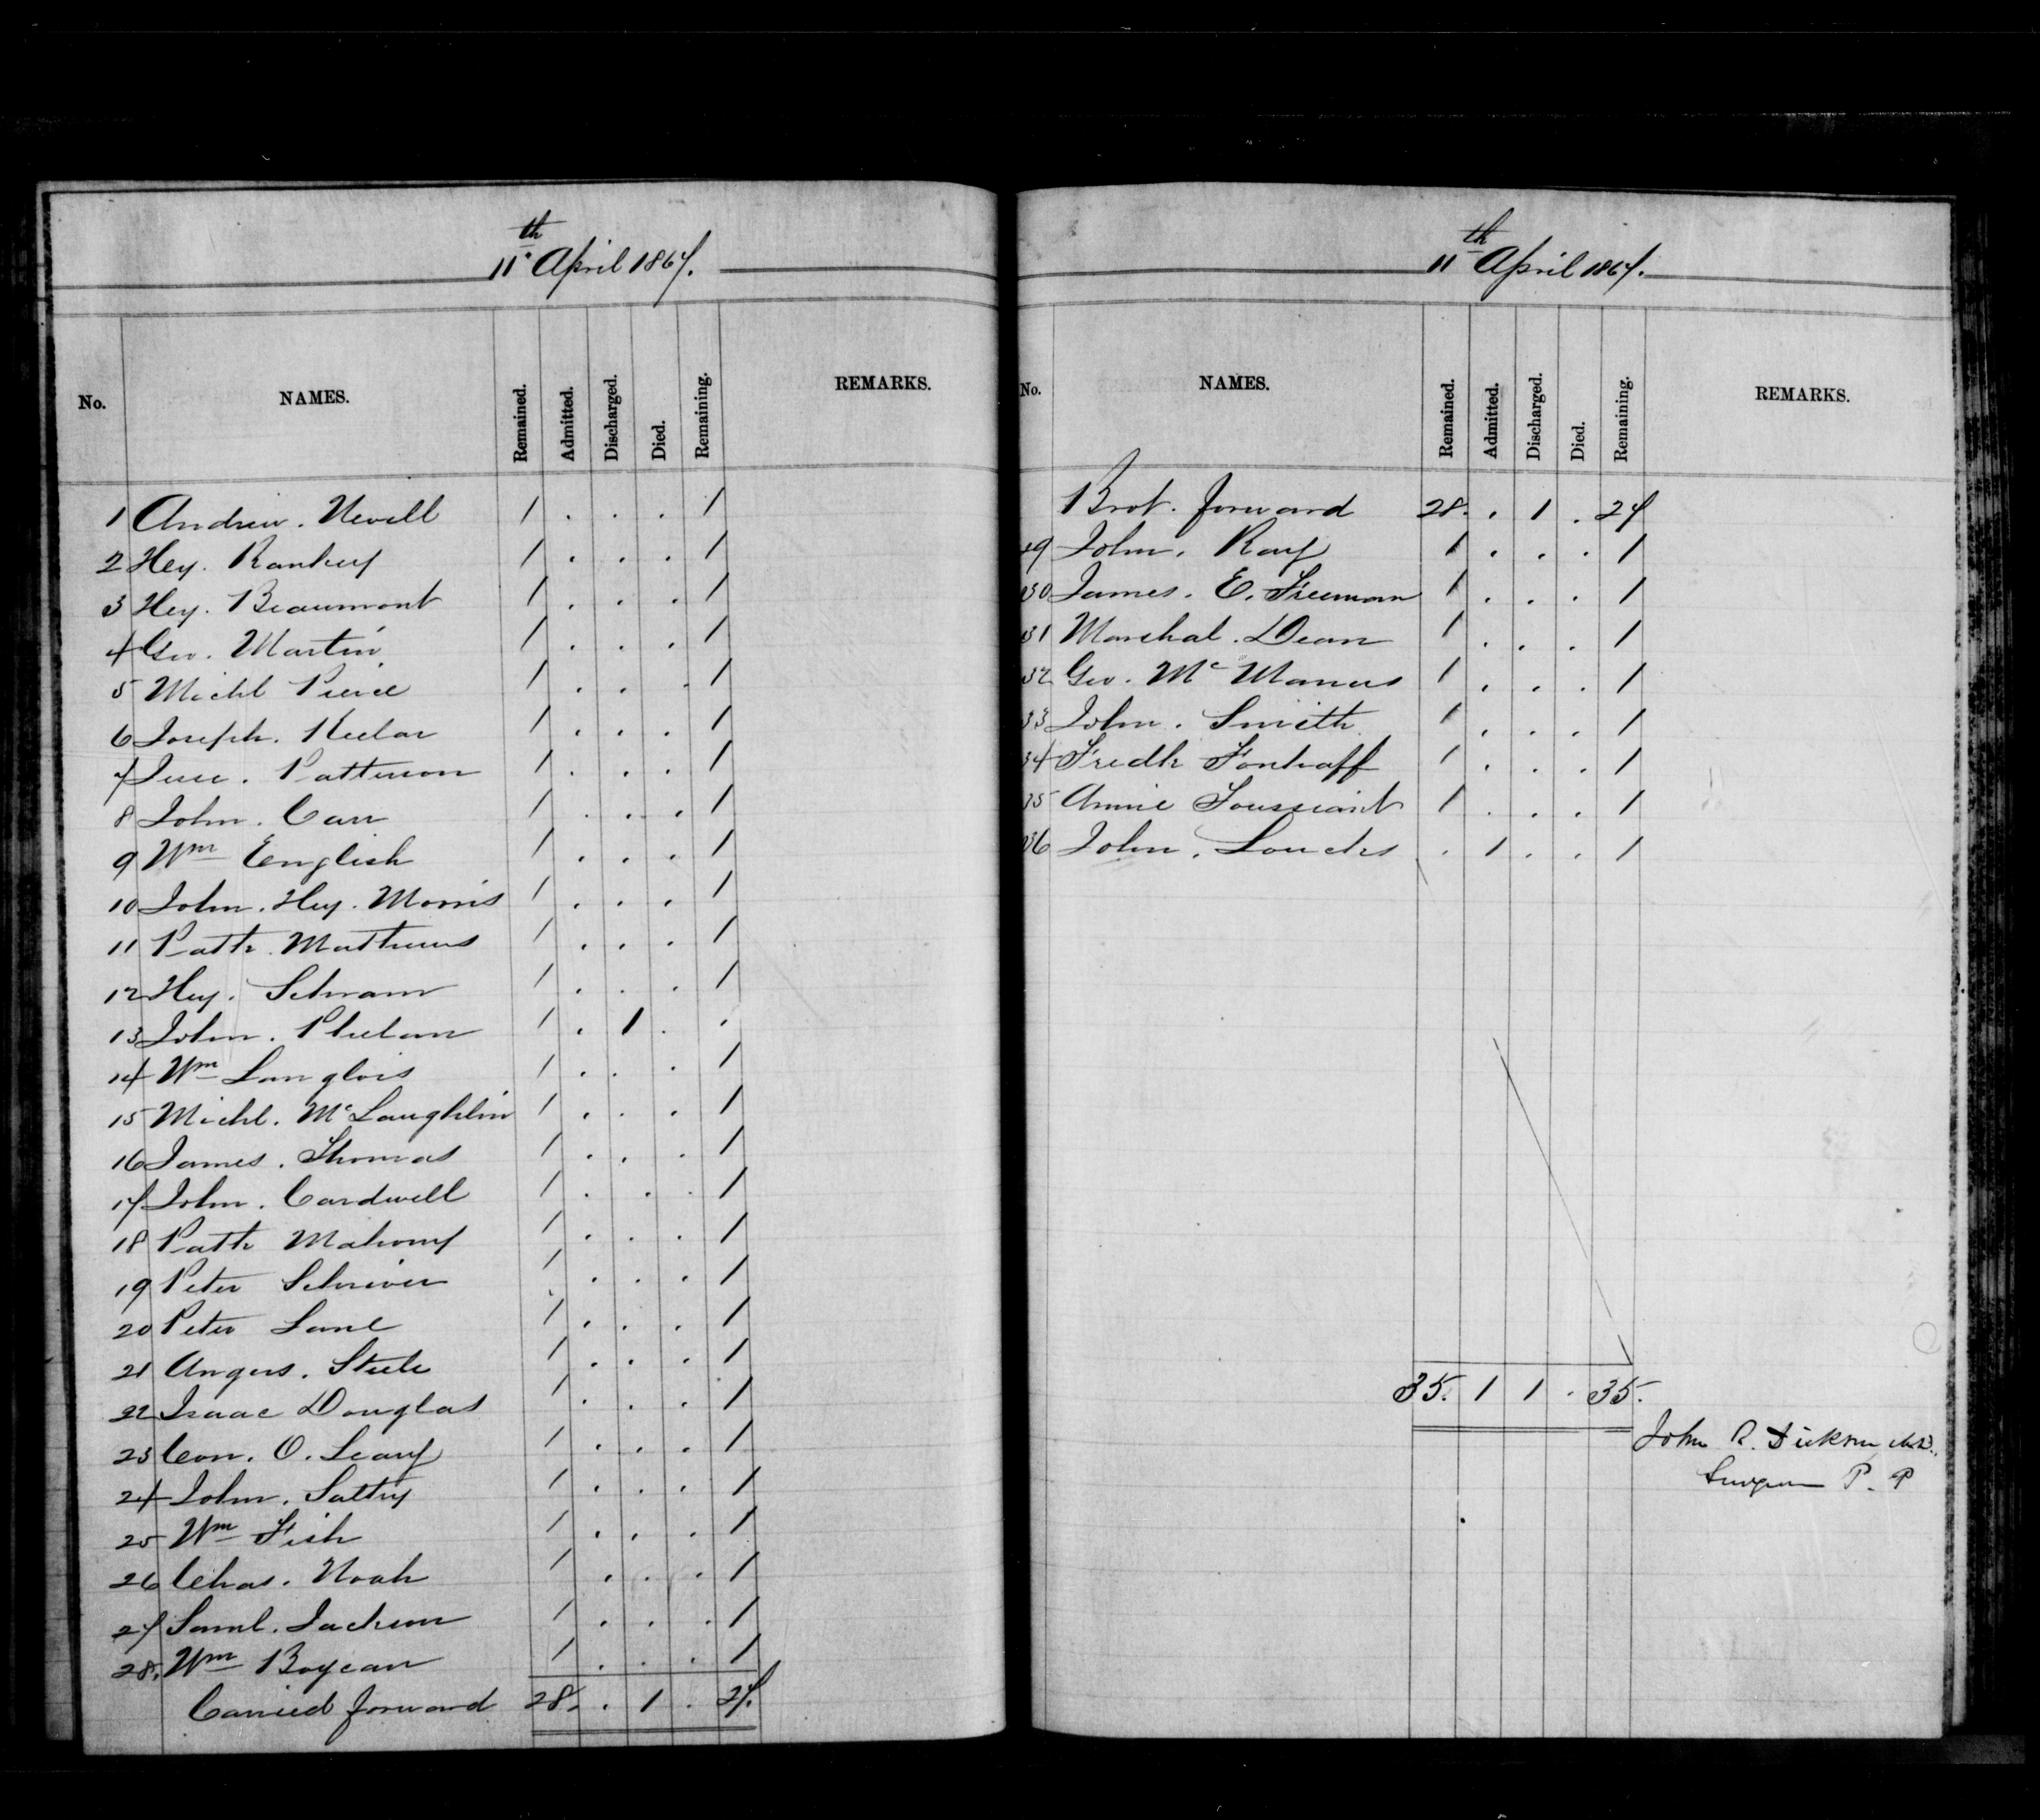 11th April 1867.
No. NAMES. Remained. Admitted. Discharged. Died. Remaining. REMARKS.
1 Andrew. Nevill 1 . . . 1
2 Hey. Rankey 1 . . . 1
3 Hey. Beaumont 1 . . . 1
4 Geo. Martin 1 . . . 1
5 Michl Pierce 1 . . . 1
6 Joseph. 1 . . . 1
7 Jesse. Patterson 1 . . . 1
8 John. Carr 1 . . . 1
9 Wm English 1 . . . 1
10 John. Hey. Morris 1 . . . 1
11 Patk. Matthews 1 . . . 1
12 Hey. Schram 1 . . . 1
13 John. Phelan 1 . 1 . .
14 Wm Langlois 1 . . . 1
15 Michl. McLaughlin 1 . . . 1
16 James. Thomas 1 . . . 1
17 John. Cardwell 1 . . . 1
18 Patk Mahony 1 . . . 1
19 Peter Schriver 1 . . . 1
20 Peter Lane 1 . . . 1
21 Angus. Steele 1 . . . 1
22 Isaac Douglas 1 . . . 1
23 Con. O. Leary 1 . . . 1
24 John. Saltry 1 . . . 1
25 Wm Fish 1 . . . 1
26 Chas. Noah 1 . . . 1
27 Saml. Jackson 1 . . . 1
28. Wm Bogean 1 . . . 1
Carried forward 28. . 1 . 27.
11th April 1867.
No. NAMES. Remained. Admitted. Discharged. Died. Remaining. REMARKS.
Brot. forward 28. . 1 . 27
29 John. Ray 1 . . . 1
30 James. E. Freeman 1 . . . 1
31 Marshal. Dean 1 . . . 1
32 Geo. McManus 1 . . . 1
33 John. Smith 1 . . . 1
34 Fredk 1 . . . 1
35 Annie Toussaint 1 . . . 1
36 John. Loucks . 1 . . 1
35. 1 1 . 35.
John R. Dickson M.D.,
Surgeon P. P